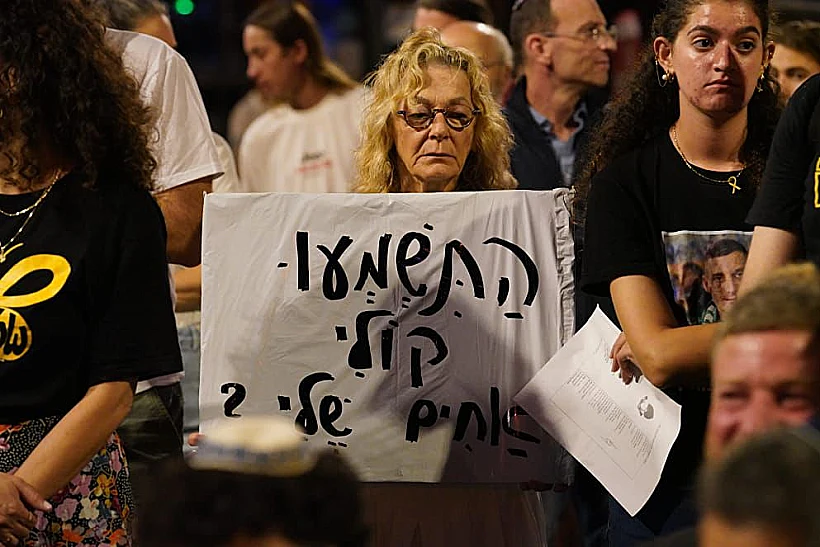 הֲתִּשְׁמָעוּ-
קוֹלִי
אַחִים שֶׁלִי ?